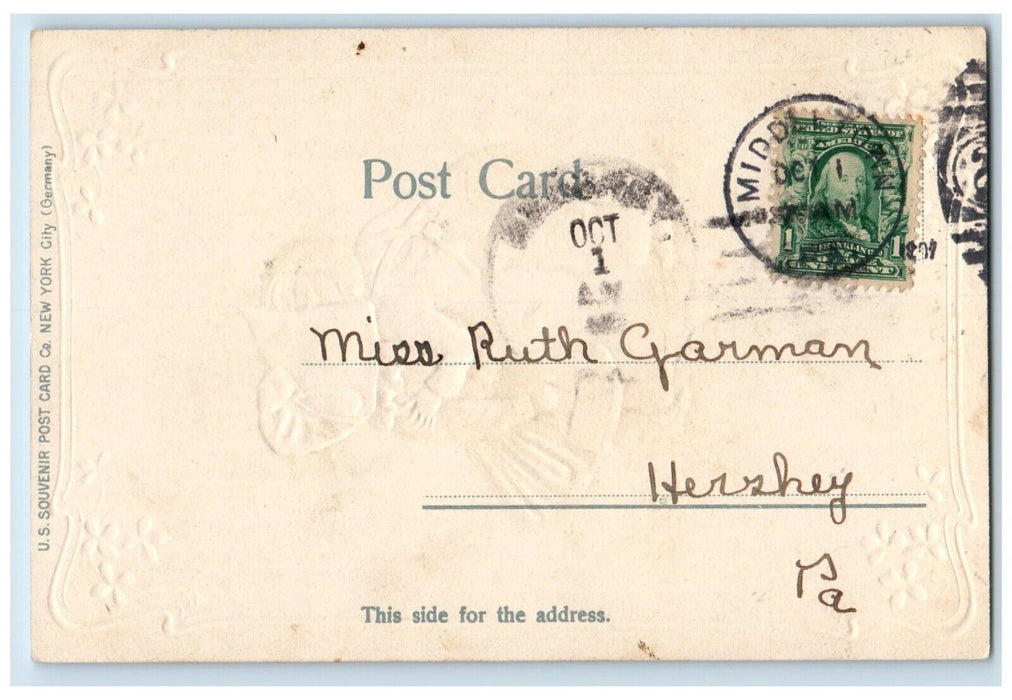 U. S. SOUVENIR POST CARD Co. NEW YORK City (Germany)
Post Card
OCT
1
AM
OCT 1
AM
UNITED STATES OF
AMERICA
1 FRANKLIN 1
ONE CENT
Miss Ruth Garman
Hershey
Pa
This side for the address.